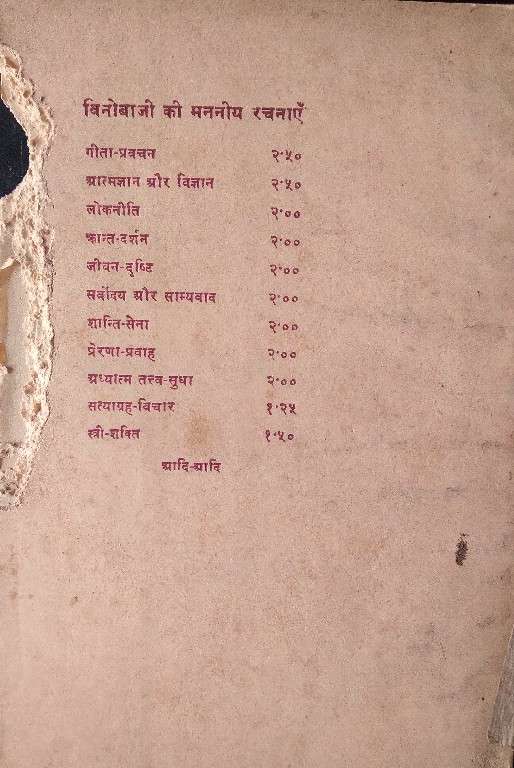 विनोबाजी की मननीय रचनाएँ
गीता-प्रवचन २·५०
आत्मज्ञान और विज्ञान २·५०
लोकनीति २·००
क्रान्त-दर्शन २·००
जीवन-दृष्टि २·००
सर्वोदय और साम्यवाद २·००
शान्ति-सेना २·००
प्रेरणा-प्रवाह २·००
अध्यात्म तत्त्व-सुधा २·००
सत्याग्रह-विचार १·२५
स्त्री-शक्ति १·५०
आदि-आदि